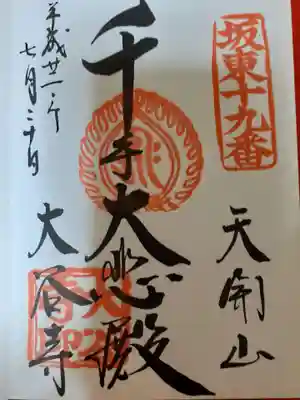 坂東十九番
天開山
千手大悲殿
大谷寺
平成廿一年
七月二十日